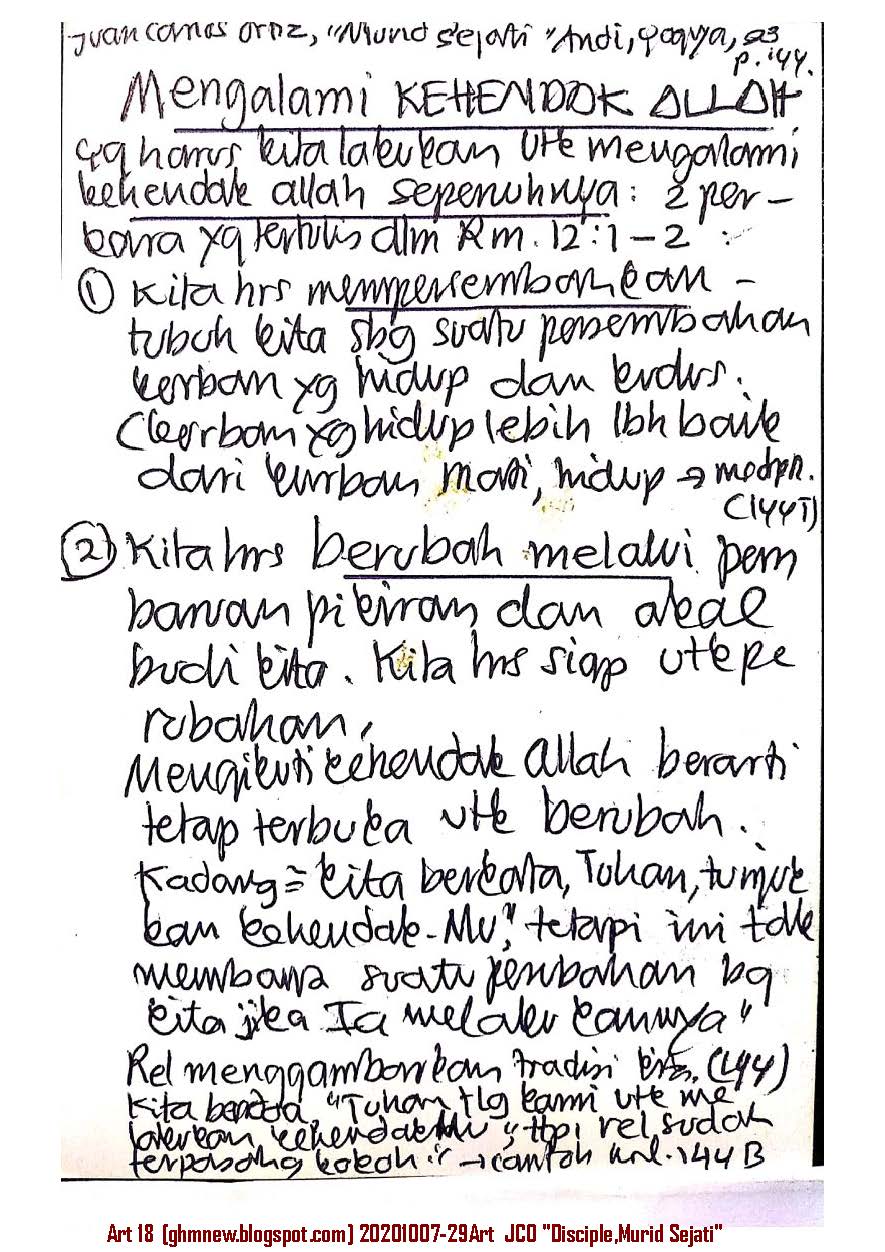 Juan Carlos Ortiz, "Murid Sejati" Andi, Yogya, 93
p. 144.
Mengalami KEHENDAK ALLAH
yg harus kita lakukan utk mengalami
kehendak allah sepenuhnya: 2 per-
kara yg tertulis dlm Rm. 12:1-2 :
① Kita hrs mempersembahkan -
tubuh kita sbg suatu persembahan
korban yg hidup dan kudus.
(korban yg hidup lebih lbh baik
dari kurban mati, hidup →
(144T)
② Kita hrs berubah melalui pem
baruan pikiran dan akal
budi kita. Kita hrs siap utk pe
rubahan,
Mengikuti kehendak Allah berarti
tetap terbuka utk berubah.
Kadang= kita berkata, Tuhan, tunjuk
kan kehendak-Mu", tetapi ini tdk
membawa suatu perubahan bg
kita jika Ia melakukannya"
Rel menggambarkan tradisi kita. (144)
Kita berdoa "Tuhan tlg kami utk me
lakukan kehendakMu", ttpi rel sudah
terpasang kokoh :" → contoh 144B
Art 18 (ghmnew.blogspot.com) 20201007-29Art JCO "Disciple,Murid Sejati"